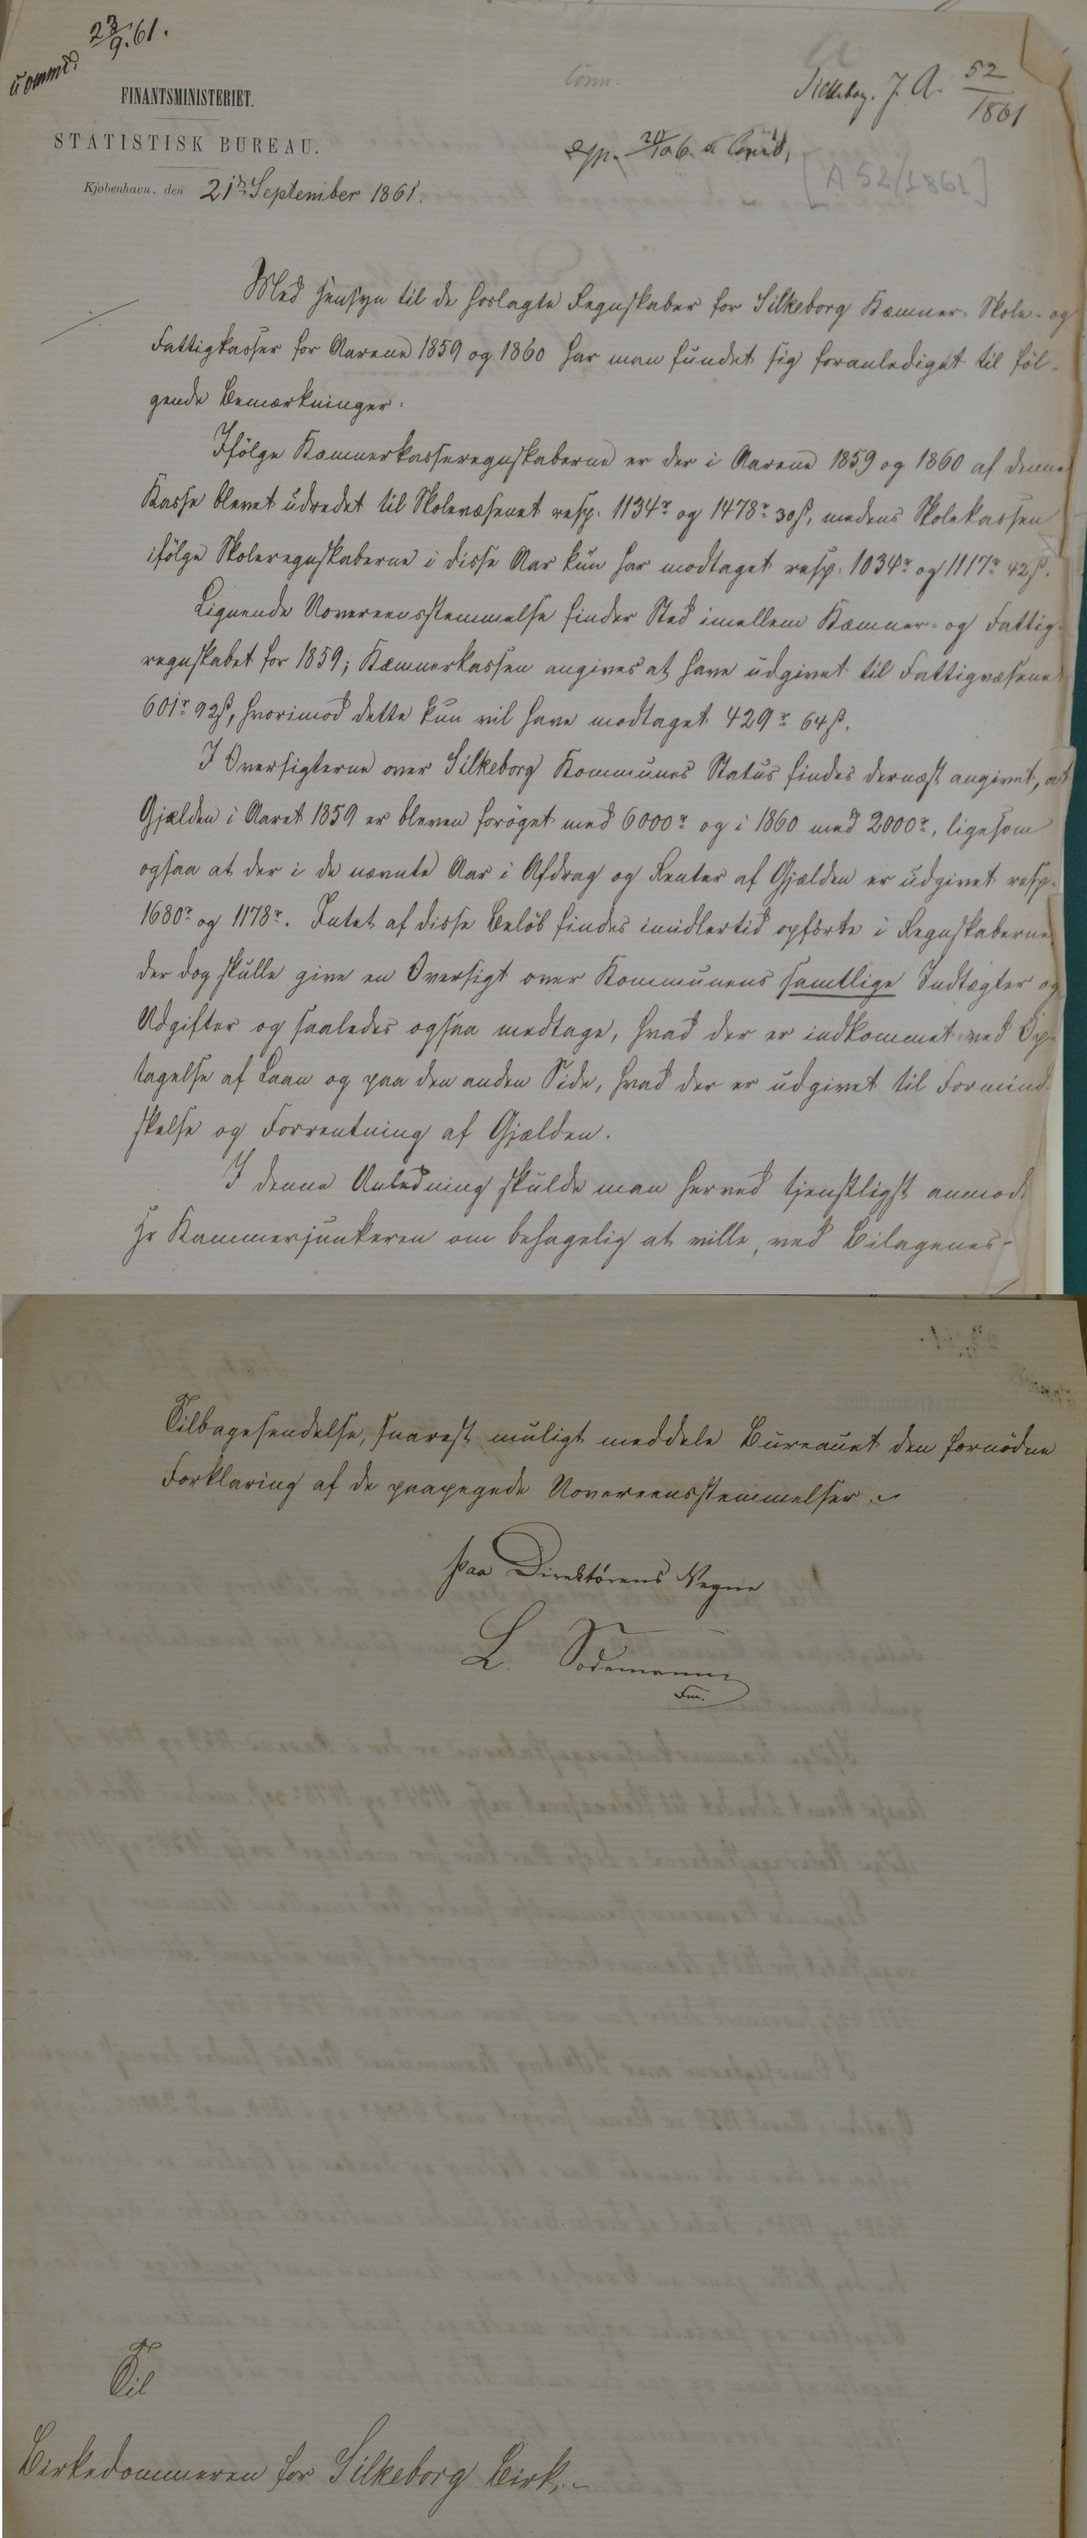 23/9.61.
FINANTSMINISTERIET.
STATISTISK BUREAU.
Kjøbenhavn, den 21de September 1861.
Silkeborg. J. A. 52/1861
[A 52/1861]
Med Hensyn til de forlagte Regnskaber for Silkeborg Kæmner- Skole- og
Fattigkasser for Aarene 1859 og 1860 har man fundet sig foranlediget til føl-
gende Bemærkninger.
Ifølge Kæmnerkasseregnskaberne er der i Aarene 1859 og 1860 af denne
Kasse blevet udredet til Skolevæsenet resp. 1134r og 1478r 30ß, medens Skolekassen
ifølge Skoleregnskaberne i disse Aar kun har modtaget resp. 1034r og 1117r 42ß.
Lignende Uovereensstemmelse finder Sted imellem Kæmner- og Fattig-
regnskabet for 1859; Kæmnerkassen angives at have udgivet til Fattigvæsenet
601r 92ß, hvorimod dette kun vil have modtaget 429r 64ß.
I Oversigterne over Silkeborg Kommunes Status findes dernæst angivet, at
Gjælden i Aaret 1859 er bleven forøget med 6000r og i 1860 med 2000r, ligesom
ogsaa at der i de nævnte Aar i Afdrag og Renter af Gjælden er udgivet resp.
1680r og 1178r. Intet af disse Beløb findes imidlertid opførte i Regnskaberne
der dog skulle give en Oversigt over Kommunens samtlige Indtægter og
Udgifter og saaledes ogsaa medtage, hvad der er indkommet ved Op-
tagelse af Laan og paa den anden Side, hvad der er udgivet til Formind-
skelse og Forrentning af Gjælden.
I denne Anledning skulde man herved tjenstligst anmode
Hr Kammerjunkeren om behagelig at ville, ved Bilagenes-
Tilbagesendelse, snarest muligt meddele Bureauet den fornødne
Forklaring af de paapegede Uovereensstemmelser.
Paa Direktørens Vegne
L. Sodemann
Fm.
Til
Birkedommeren for Silkeborg Birk.